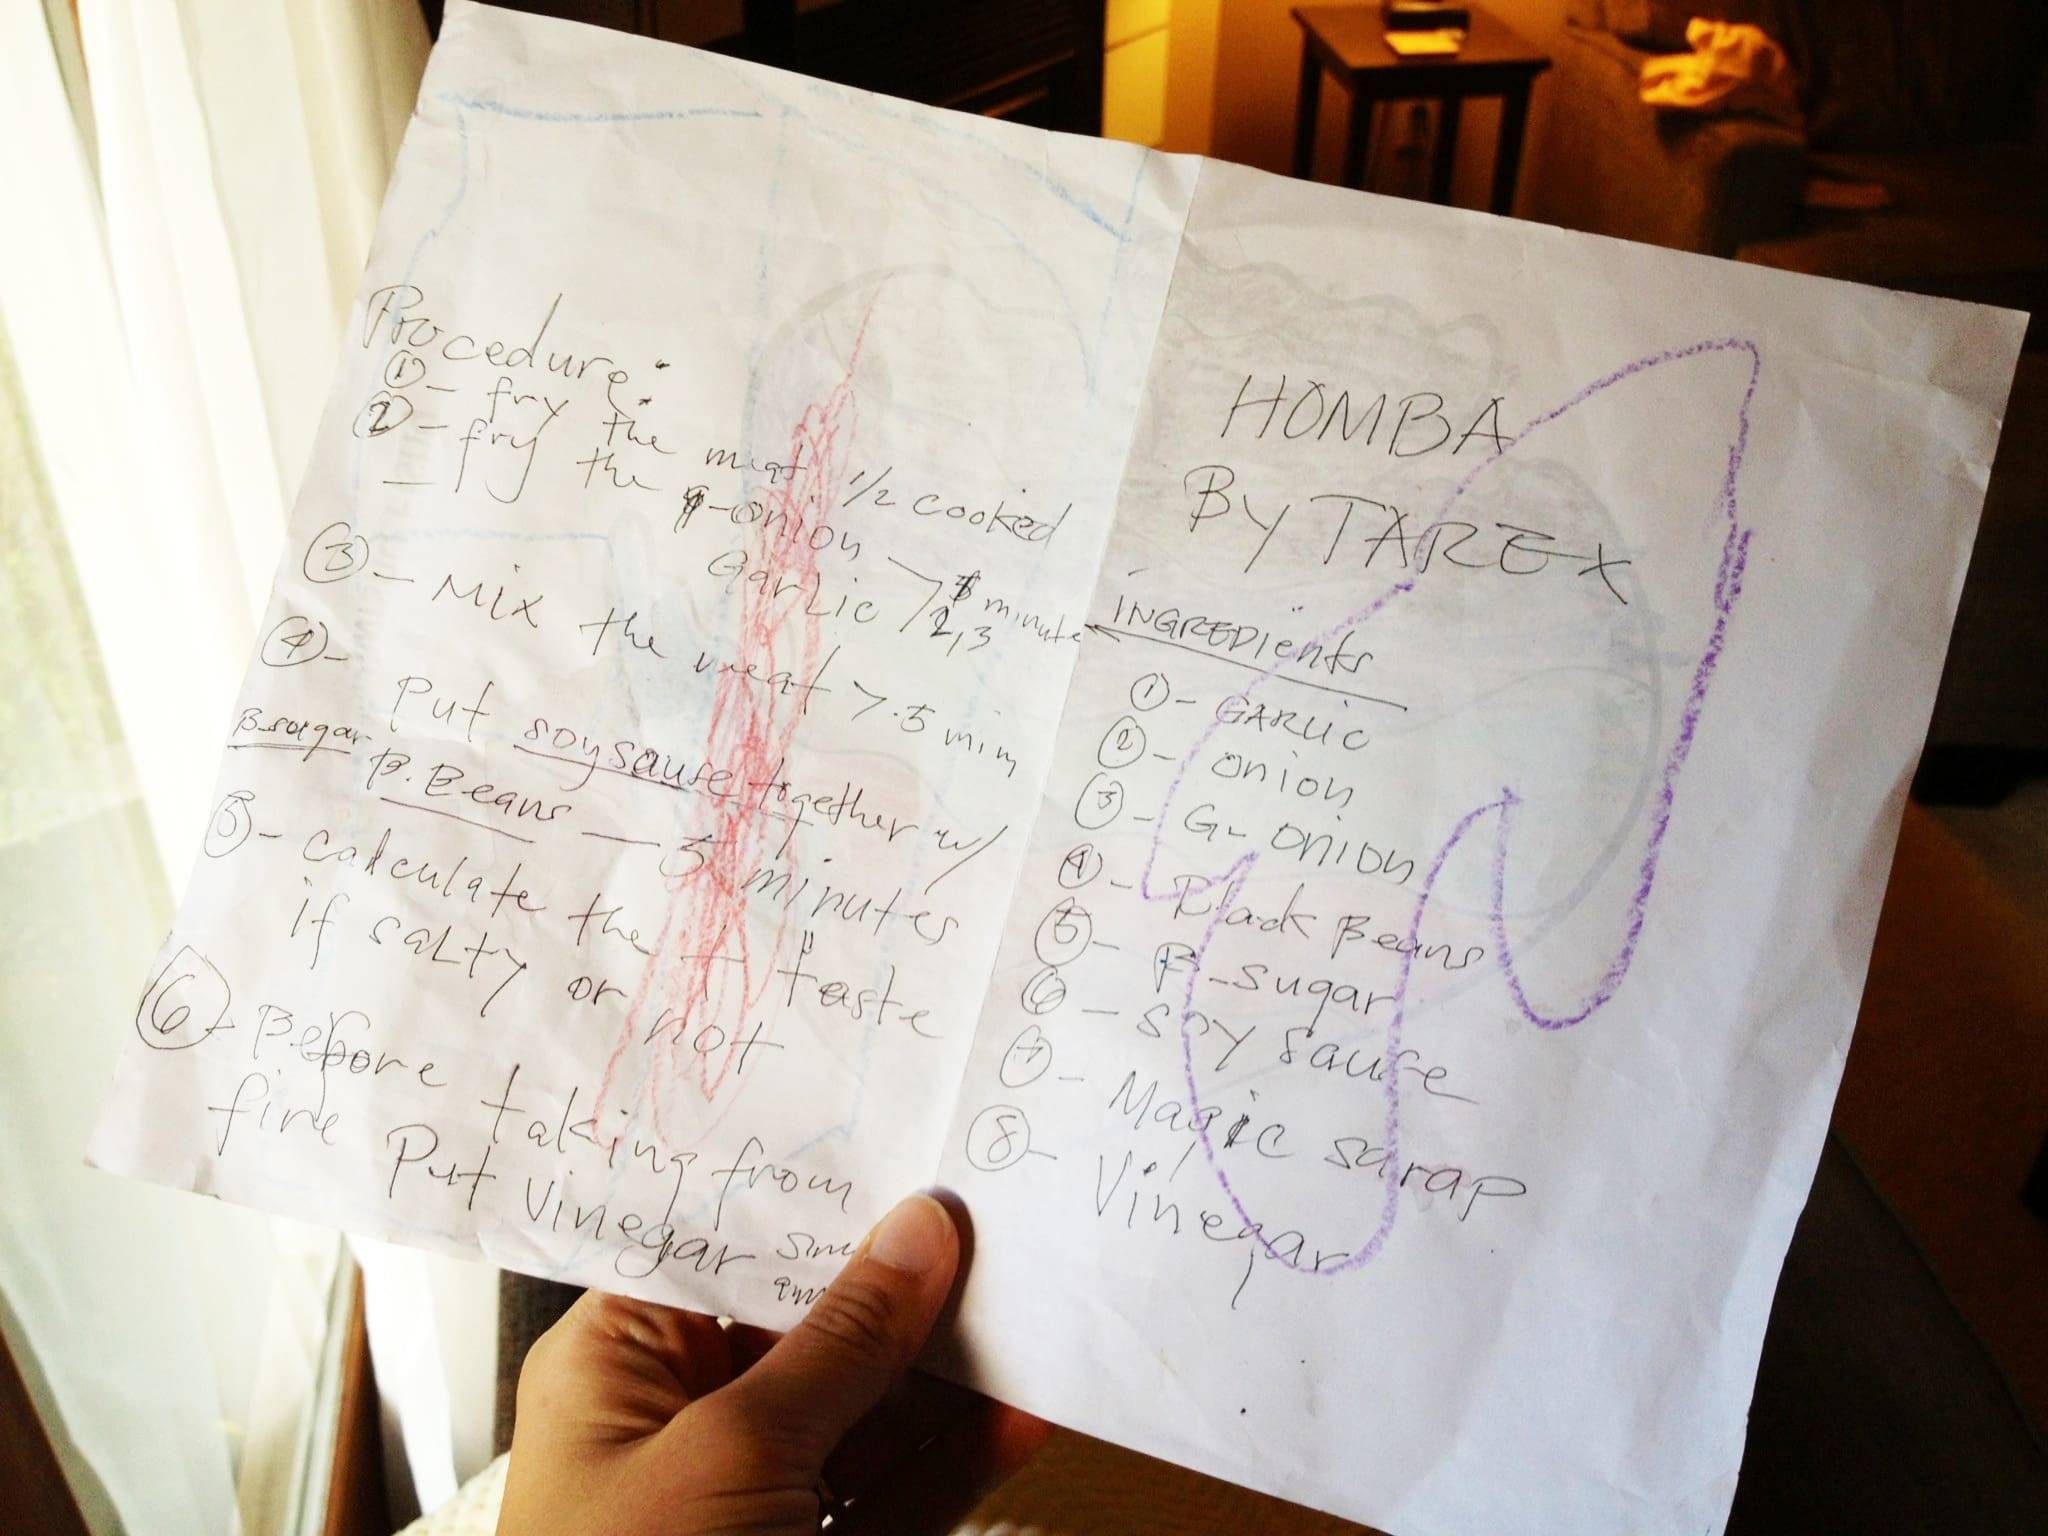 Procedure:
① - fry the meat 1/2 cooked
② - fry the onion
Garlic > minute
2,3
③ - Mix the meat > 5 min
④ - Put soysause together w/
B-sugar B. Beans — 5 minutes
⑤ - calculate the t taste
if salty or not
⑥ - Before taking from
fire Put Vinegar
HOMBA
By TAREX
INGREDients
① - GARLIC
② - onion
③ - G- onion
④ - Black Beans
⑤ - B-sugar
⑥ - Soy sause
⑦ - Magic sarap
⑧ - Vinegar